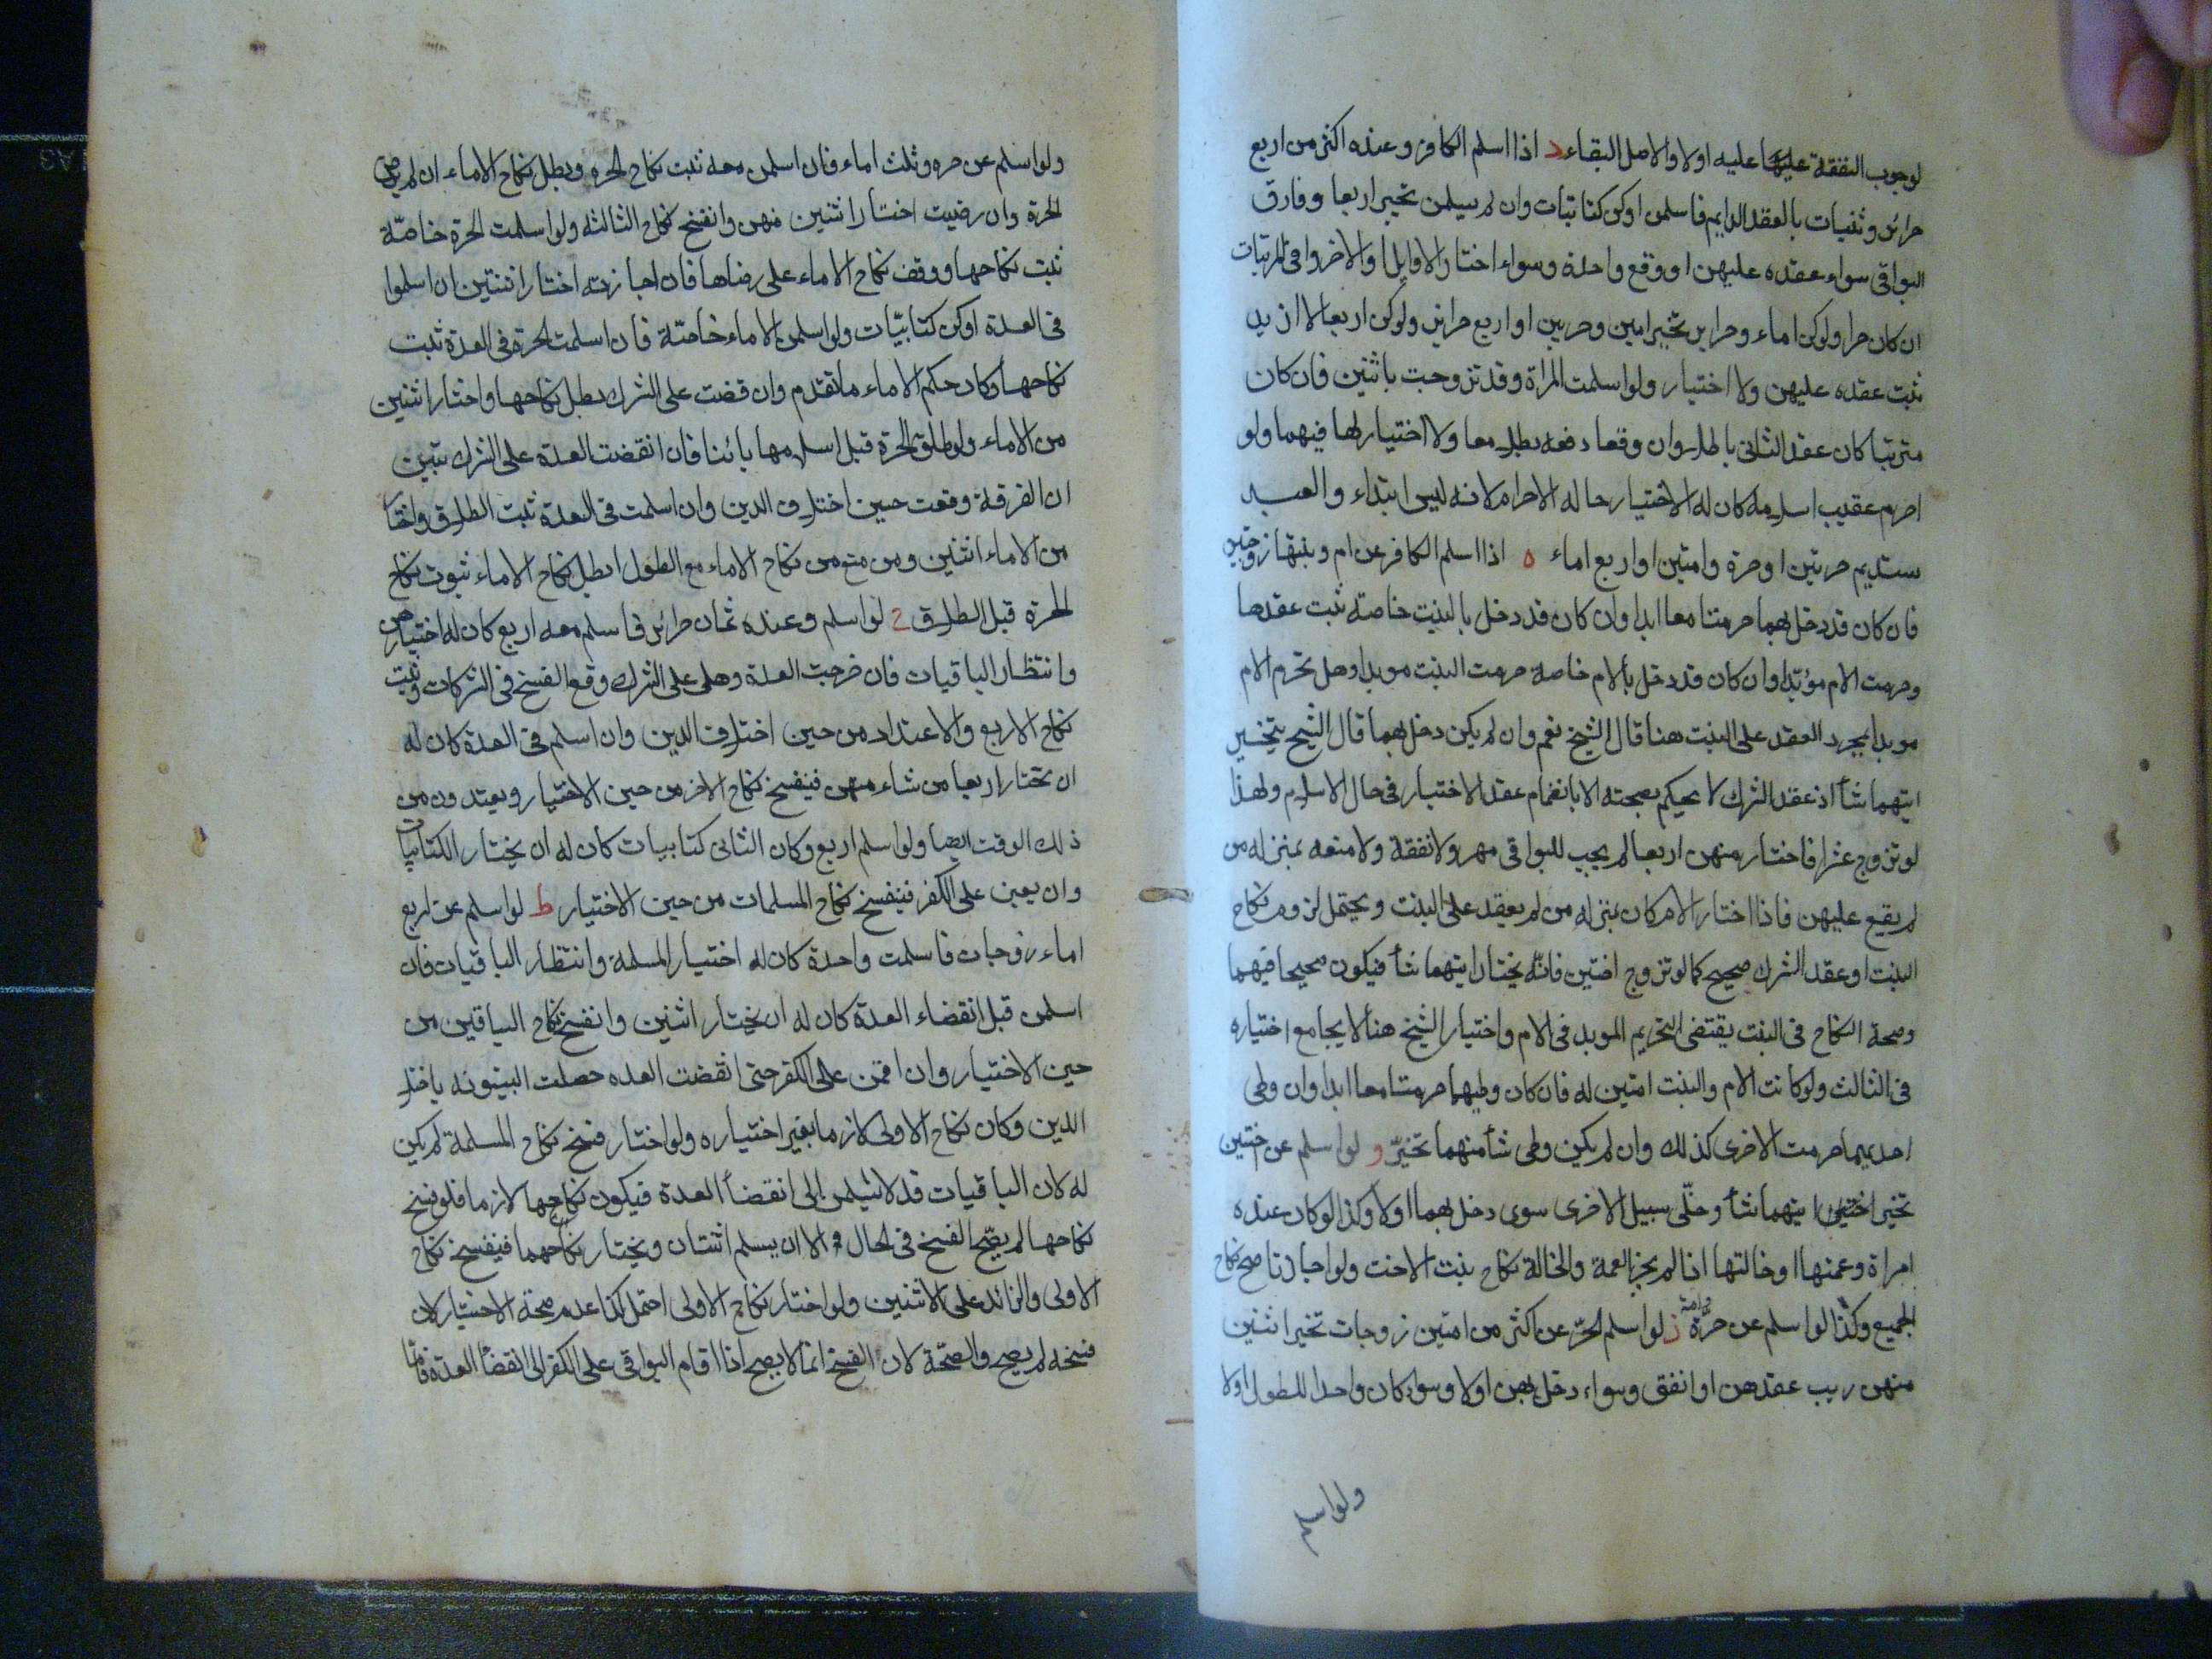 لوجوب النفقة عليها عليه اولا والاصل البقاء د اذا اسلم الكافر وعنده اكثر من اربع
حرائر وثنيات بالعقد الدايم فاسلمن او كن كتابيات وان لم يسلمن تخير اربعا وفارق
البواقى سواء عقده عليهن او وقع واحدة وسواء اختار الاوايل او الاخر وا فى المرتبات
ان كان حرا ولو كن اماء وحراير تخير امتين وحرتين او اربع حراير ولو كن اربعا لا ازيد
ثبت عقده عليهن ولا اختيار ولو اسلمت المراة وقد تزوجت باثنين فان كان
مترتبا كان عقد الثانى باطلا وان وقعا دفعه بطلا معا ولا اختيار لها فيهما ولو
احرم عقيب اسلامه كان له الاختيار حاله الاحرام لانه ليس ابتداء والعبد
يستديم حرتين او حرة وامتين او اربع اماء ه اذا اسلم الكافر عن ام وبنتها زوجتين
فان كان قد دخل بهما حرمتا معا ابدا وان كان قد دخل بالبنت خاصة ثبت عقدها
وحرمت الام مؤبّدا وان كان قد دخل بالام خاصة حرمت البنت موبدا وهل تحرم الام
موبدا بمجرد العقد على البنت هنا قال الشيخ نعم وان لم يكن دخل بهما قال الشيخ يتخير
ايتهما شأ اذ عقد الشرك لا يحكم بصحته الا بانضمام عقد الاختيار فى حال الاسلام ولهذا
لو تزوج عشرا فاختار منهن اربعا لم يجب للبواقى مهر ولا نفقة ولا متعه بمنزله من
لم يقع عليهن فاذا اختار الام كان بمنزله من لم يعقد على البنت ويحتمل لزوم نكاح
البنت او عقد الشرك صحيح كما لو تزوج اختين فانّه يختار ايتهما شأ فيكون صحيحا فيهما
وصحة النكاح فى البنت يقتضى التحريم الموبد فى الام واختيار الشيخ هنا لا يجامع اختياره
فى الثالث ولو كانت الام والبنت امتين له فان كان وطيهما حرمتا معا ابدا وان وطى
احديهما حرمت الاخرى كذلك وان لم يكن وطى شأ منهما تخيّر و لو اسلم عن اختين
تخير اختين ايتهما شأ وخلّى سبيل الاخرى سوى دخل بهما اولا وكذا لو كان عنده
امراة وعمتها او خالتها اذا لم يجز العمة والخالة نكاح بنت الاخت ولو اجازتا صح نكاح
الجميع وكذا لو اسلم عن حرّة وامة ز لو اسلم الحرّ عن اكثر من امتين زوجات تخير اثنين
منهن ريب عقدهن او اتفق وسواء دخل بهن اولا وسواء كان واحدا للطول اولا
ولو اسلم
ولو اسلم عن حره وثلث اماء فان اسلمن معه ثبت نكاح الحره وبطل نكاح الاماء ان لم يرض
الحرة وان رضيت اختار اثنين منهن وانفسخ نكاح الثالثه ولو اسلمت الحرة خاصّة
ثبت نكاحها ووقف نكاح الاماء على رضاها فان اجازته اختار اثنتين ان اسلموا
فى العدة او كن كتابيّات ولو اسلمن الاماء خاصّة فان اسلمت الحرة فى العدة ثبت
نكاحها وكان حكم الاماء ما تقدم وان قضت على الشرك بطل نكاحها واختار اثنين
من الاماء ولو طلق الحرة قبل اسلامها بائنا فان انقضت العدة على الشرك تبين
ان الفرقة وقعت حين اختلاف الدين وان اسلمت فى العدة ثبت الطلاق واختا
من الاماء اثنين ومن منع من نكاح الاماء مع الطول ابطل نكاح الاماء ثبوت نكاح
الحرة قبل الطلاق ح لو اسلم وعنده ثمان حرائر فاسلم معه اربع كان له اختيارهن
وانتظار الباقيات فان خرجت العدة وهى على الشرك وقع الفسخ فى المشركات وثبت
نكاح الاربع والاعتداد من حين اختلاف الدين وان اسلم فى العدة كان له
ان تختار اربعا من شاء منهن فينفسخ نكاح الاخر من حين الاختيار ويعتدون من
ذلك الوقت ايضا ولو اسلم اربع وكان الثانى كتابيات كان له ان يختار الكتابيات
وان يعين على الكفر فينفسخ نكاح المسلمات من حين الاختيار ط لو اسلم عن اربع
اماء زوجات فاسلمت واحدة كان له اختيار المسلمة وانتظار الباقيات فان
اسلمن قبل انقضاء العدة كان له ان يختار اثنين وانفسخ نكاح الباقين من
حين الاختيار وان اقمن على الكفر حتى انقضت العده حصلت البينونه باختلا
الدين وكان نكاح الاولى لازما بغير اختياره ولو اختار فسخ نكاح المسلمة لم يكن
له لان الباقيات قد لا يسلمن الى انقضأ العدة فيكون نكاحها لازما فلو فسخ
نكاحها لم يصّح الفسخ فى الحال الا ان يسلم اثنتان ويختار نكاحهما فينفسخ نكاح
الاولى والزائد على الاثنين ولو اختار نكاح الاولى احتمل كذا عدم صحة الاختيار لان
فسخه لم يصح والصّحة لان الفسخ انما لا يصح اذا اقام البواقى على الكفر الى انقضأ العدّة فامّا